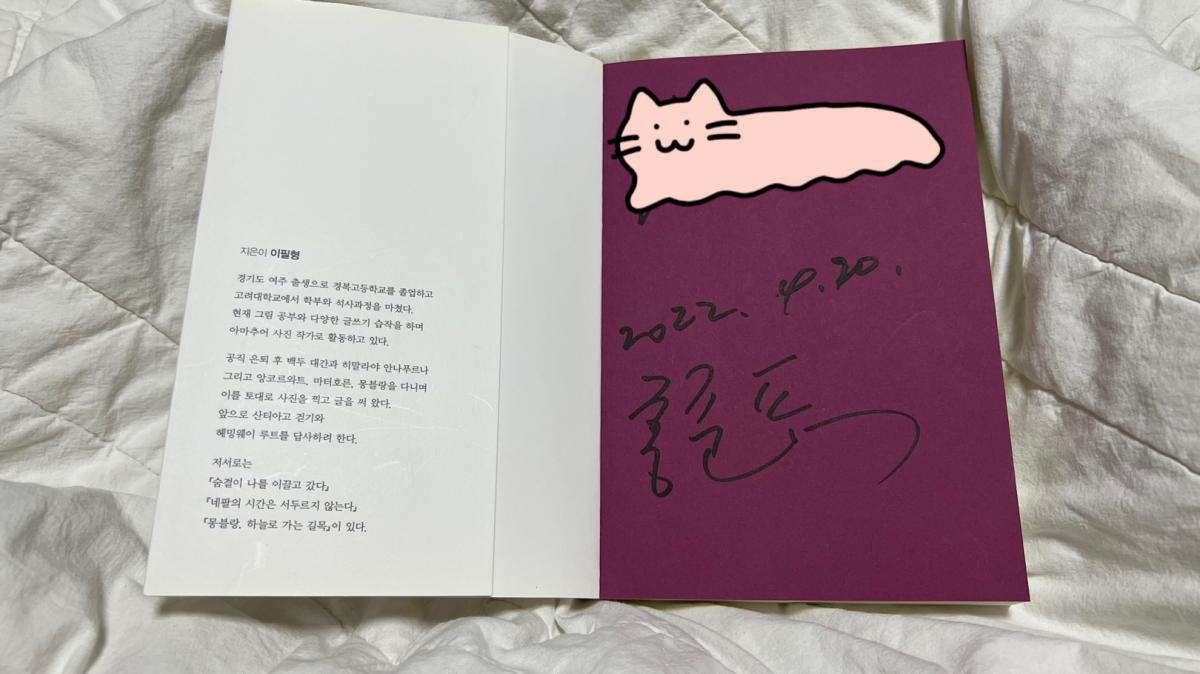 지은이 이필형
경기도 여주 출생으로 경복고등학교를 졸업하고
고려대학교에서 학부와 석사과정을 마쳤다.
현재 그림 공부와 다양한 글쓰기 습작을 하며
아마추어 사진 작가로 활동하고 있다.
공직 은퇴 후 백두 대간과 히말라야 안나푸르나
그리고 앙코르와트, 마터호른, 몽블랑을 다니며
이를 토대로 사진을 찍고 글을 써 왔다.
앞으로 산티아고 걷기와
헤밍웨이 루트를 답사하려 한다.
저서로는
『숨결이 나를 이끌고 갔다』
『네팔의 시간은 서두르지 않는다』
『몽블랑, 하늘로 가는 길목』이 있다.
2022. 4. 20.